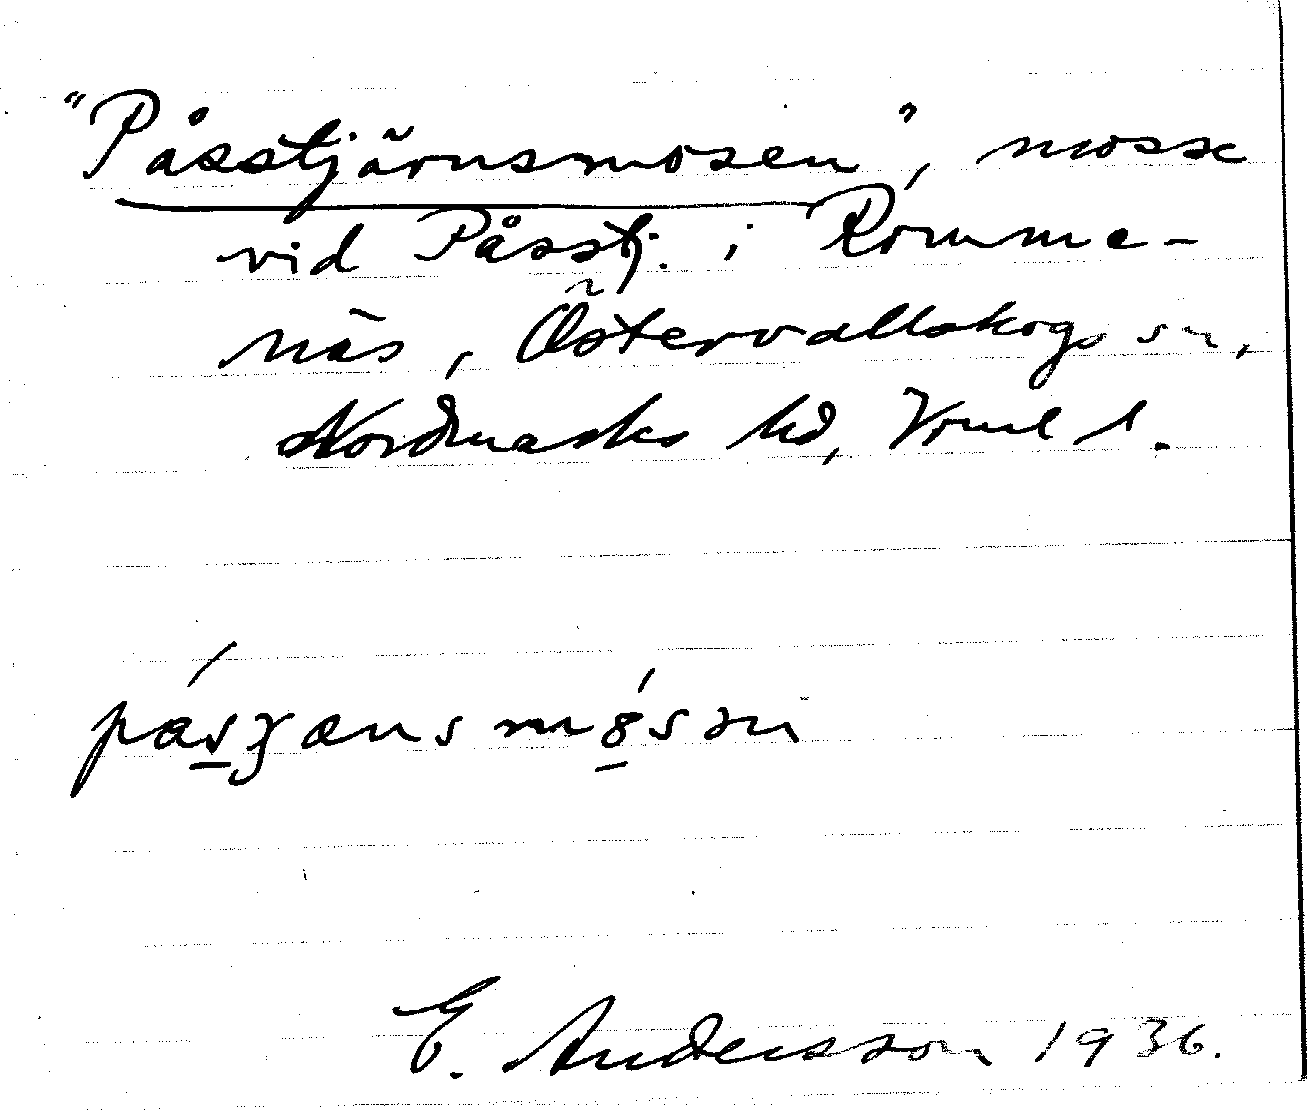 "Påsstjärnsmosen", mosse
vid Påsstj. i Romme-
näs, Östervallskogs sn,
Nordmarks hd, Vrml l.
E. Andersson 1936.